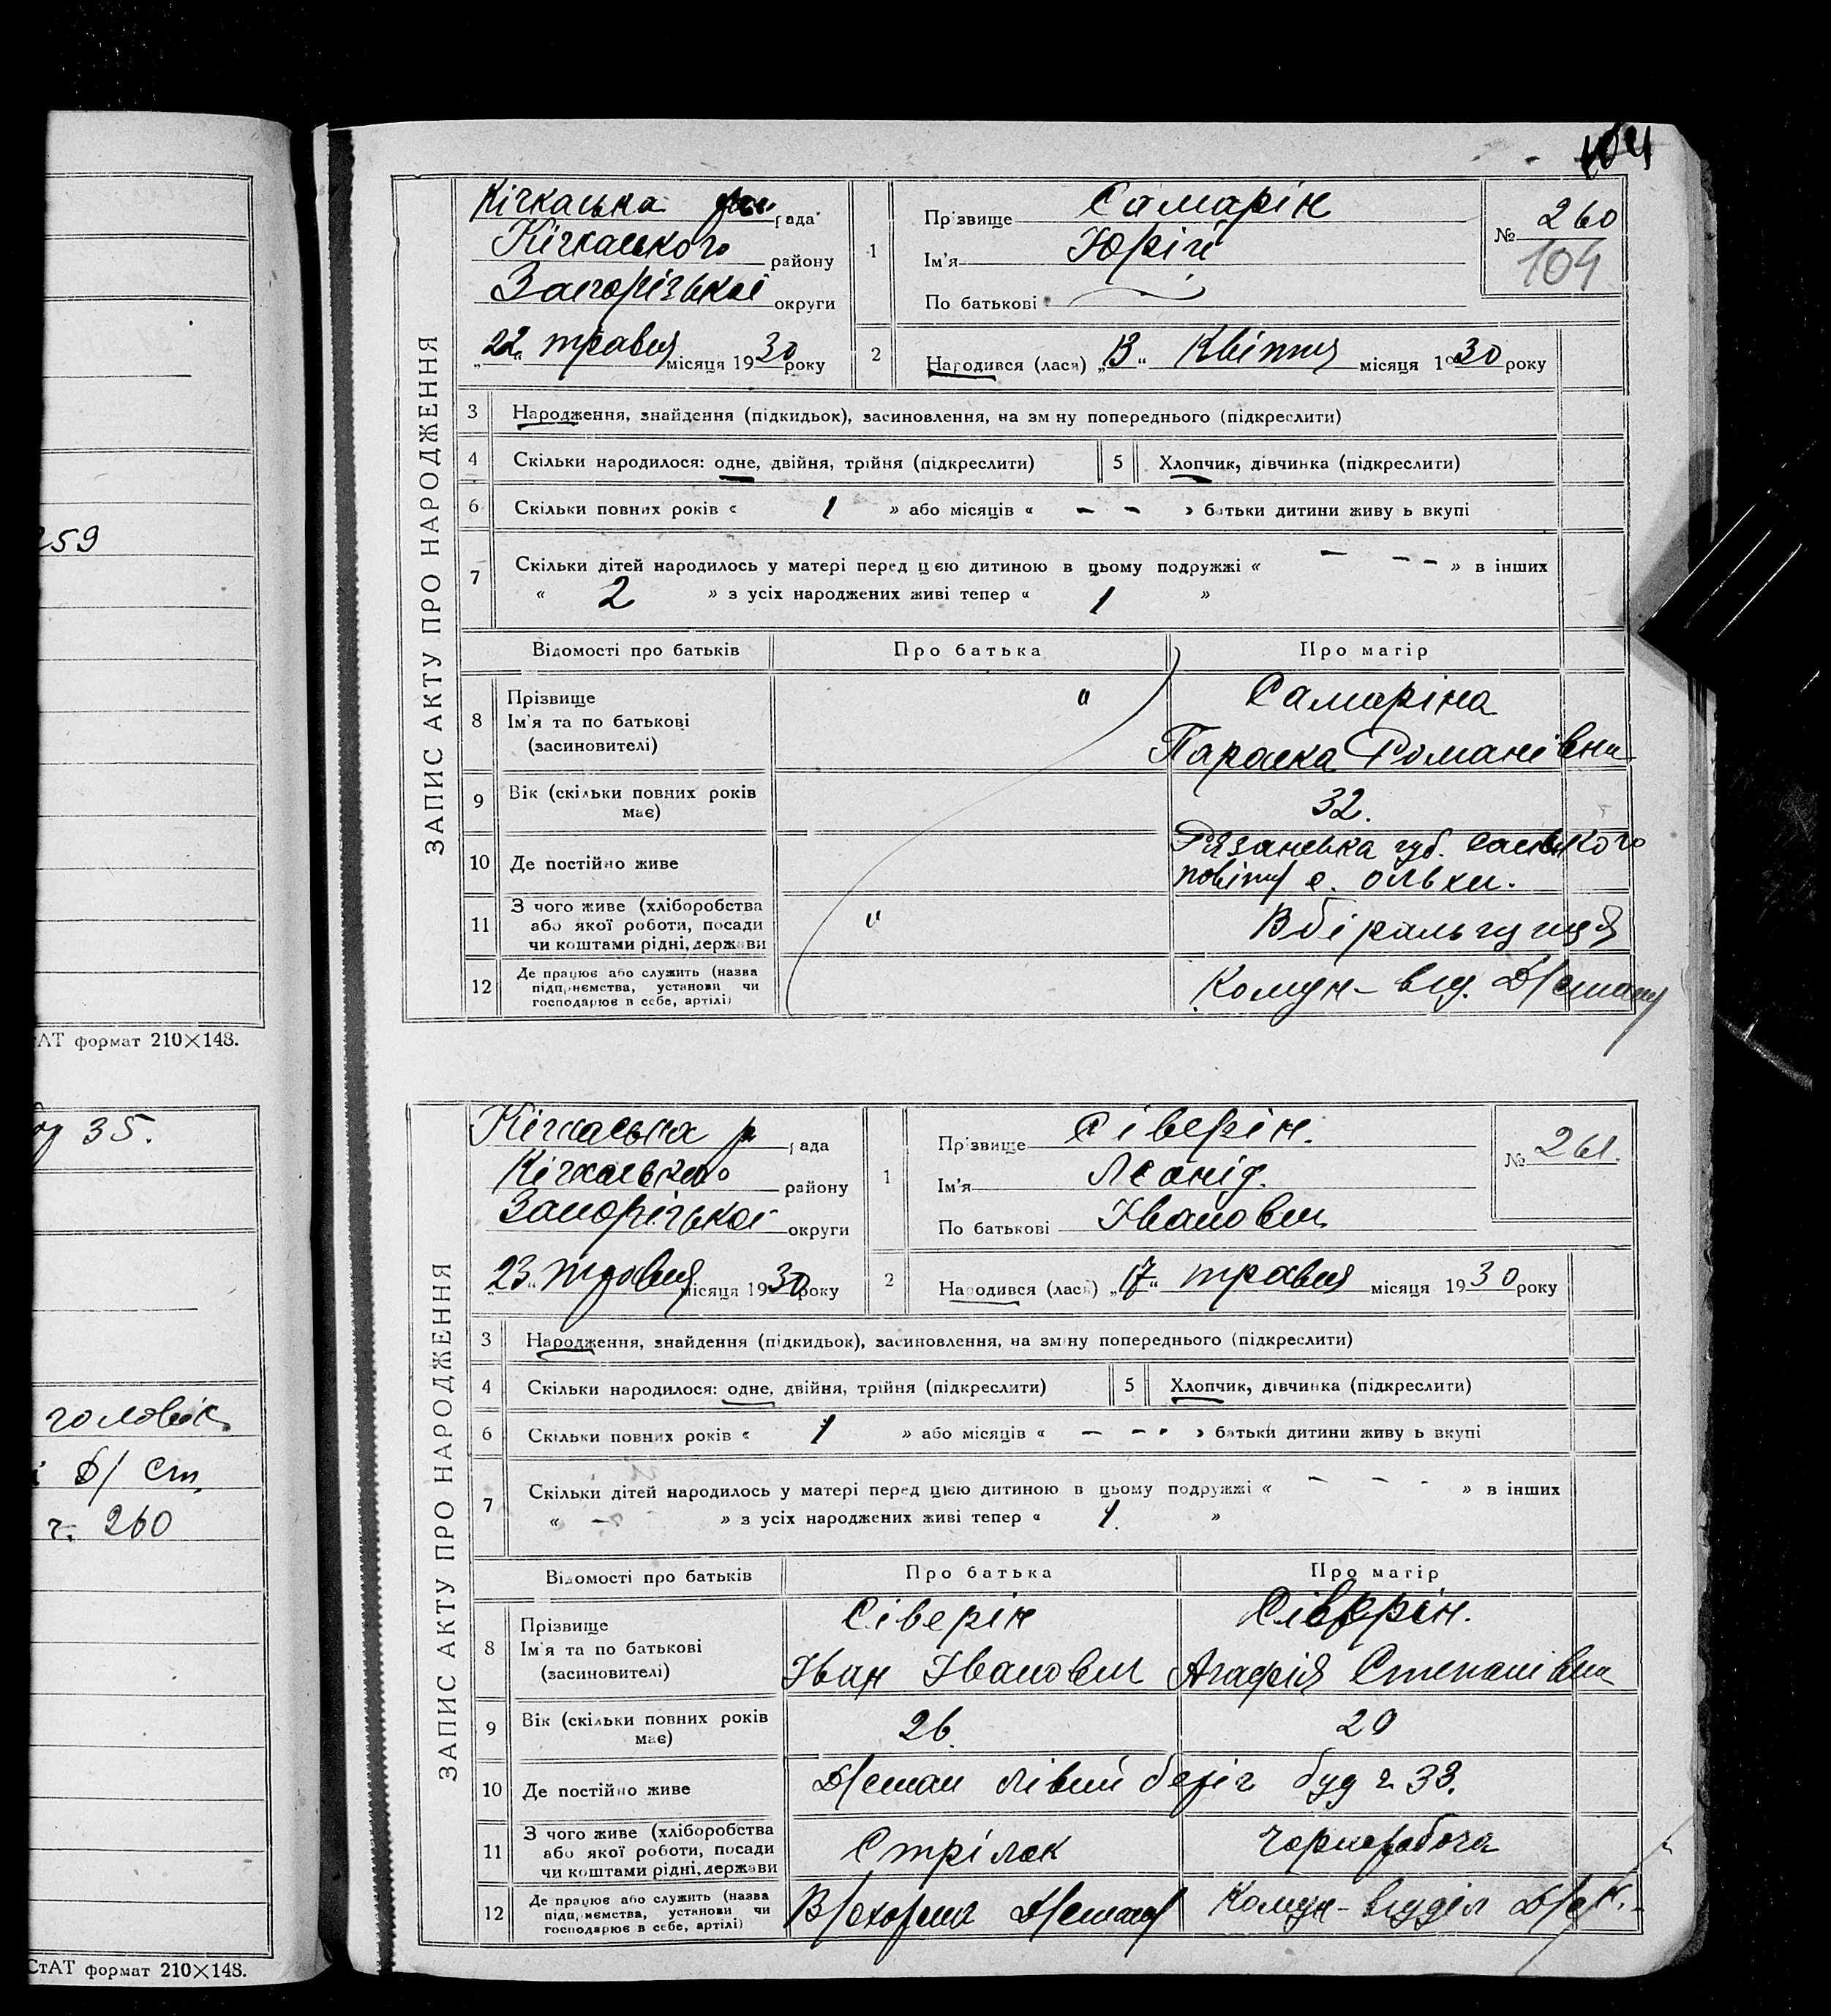 259
АТ формат 210×148.
35.
головік
б/ ст,
ч. 260
СтАТ формат 210×148.
104
ЗАПИС АКТУ ПРО НАРОДЖЕННЯ
Кічкаська рада
Кічкаського району
Запорізької округи
„22" травня місяця 1930 року
1
Прізвище Самарін
Ім'я Юрій
По батькові
№ 260
104
2 Народився (лася) „13" Квітня місяця 1930 року
3 Народження, знайдення (підкидьок), засиновлення, на зміну попереднього (підкреслити)
4 Скільки народилося: одне, двійня, трійня (підкреслити) 5 Хлопчик, дівчинка (підкреслити)
6 Скільки повних років « 1 » або місяців « – – » батьки дитини живуть вкупі
7 Скільки дітей народилось у матері перед цією дитиною в цьому подружжі « – – – » в інших
« 2 » з усіх народжених живі тепер « 1 »
Відомості про батьків Про батька Про матір
8 Прізвище
Ім'я та по батькові
(засиновителі)
" Самаріна
Параска Романівна
9 Вік (скільки повних років має)
32.
10 Де постійно живе
Рязанська губ.
повіту с. Ольхи.
11 З чого живе (хліборобства
або якої роботи, посади
чи коштами рідні, держави
" Вбіральщиця
12 Де працює або служить (назва
підприємства, установи чи
господарює в себе, артілі)
Комун– від. Д/стану
ЗАПИС АКТУ ПРО НАРОДЖЕННЯ
Кічкаська р рада
Кічкаського району
Запорізької округи
„23" травня місяця 1930 року
1
Прізвище Сіверін.
Ім'я Леонід.
По батькові Іванович
№ 261.
2 Народився (лась) „17" травня місяця 1930 року
3 Народження, знайдення (підкидьок), засиновлення, на зміну попереднього (підкреслити)
4 Скільки народилося: одне, двійня, трійня (підкреслити) 5 Хлопчик, дівчинка (підкреслити)
6 Скільки повних років « 1 » або місяців « – – – » батьки дитини живуть вкупі
7 Скільки дітей народилось у матері перед цією дитиною в цьому подружжі « – – – » в інших
« – » з усіх народжених живі тепер « 1. »
Відомості про батьків Про батька Про матір
8 Прізвище
Ім'я та по батькові
(засиновителі)
Сіверін Сіверін.
Іван Іванович Агафія Степанівна
9 Вік (скільки повних років має)
26. 20
10 Де постійно живе
Д/стан лівий беріг буд ч 33.
11 З чого живе (хліборобства
або якої роботи, посади
чи коштами рідні, держави
Стрілок Чорноробоча
12 Де працює або служить (назва
підприємства, установи чи
господарює в себе, артілі)
В/охорона Д/стану Комун– відділ